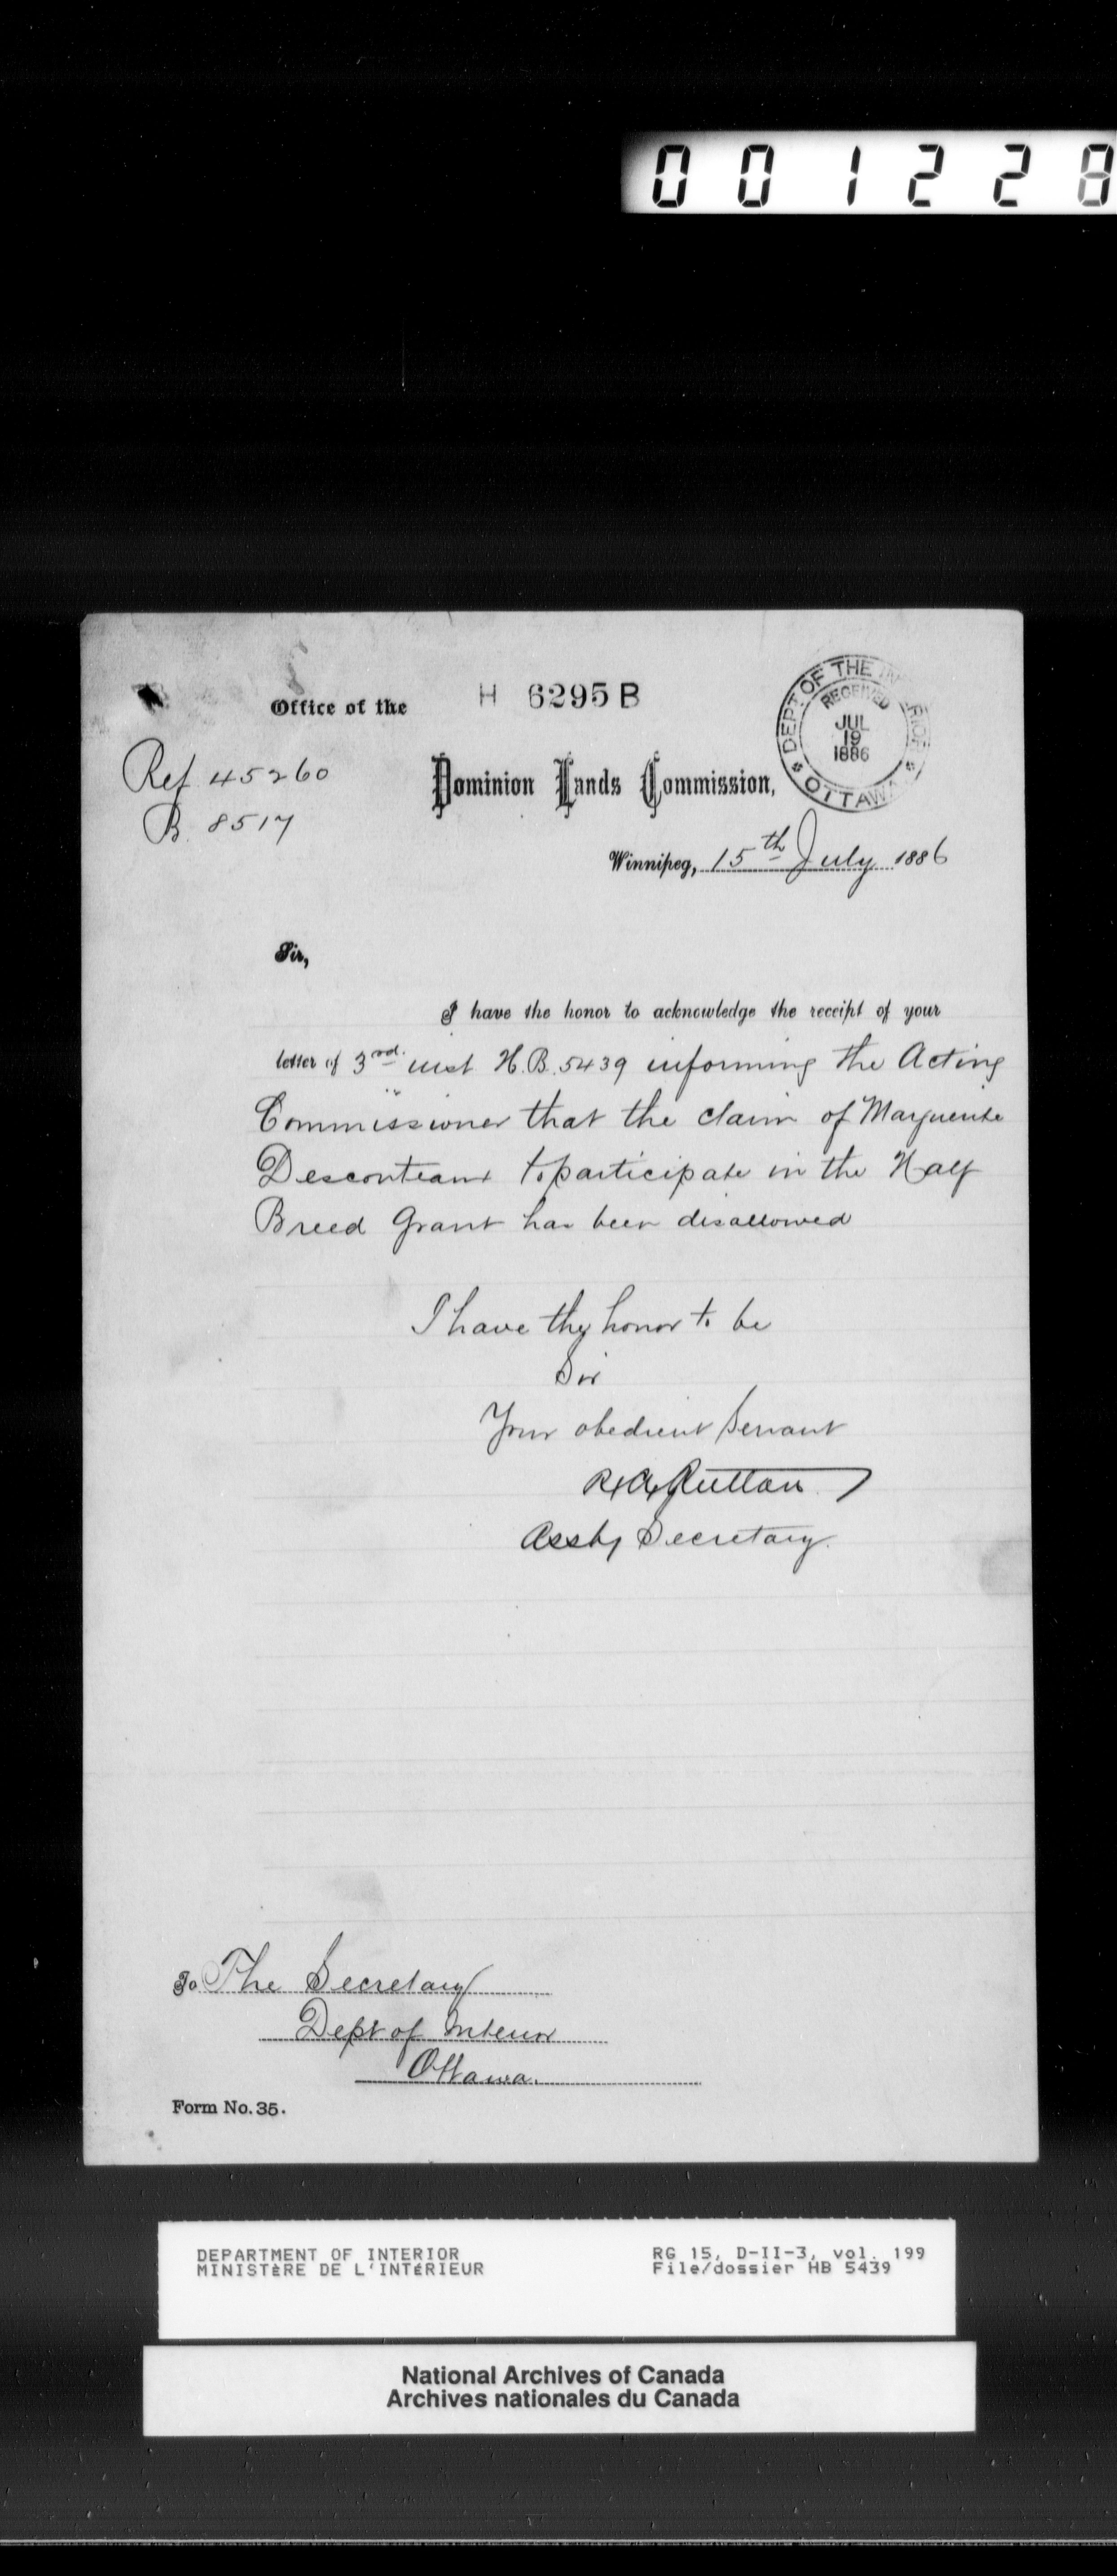 001228
H 6295 B
DEPT OF THE INTERIOR
RECEIVED
JUL
19
1886
OTTAWA
Office of the
Ref. 45260
B. 8517
Dominion Lands Commission,
Winnipeg, 15th July 1886
Sir,
I have the honor to acknowledge the receipt of your
letter of 3rd inst H.B. 5439 informing the Acting
Commissioner that the claim of Marguerite
Desconteaux to participate in the Half
Breed Grant has been disallowed
I have the honor to be
Sir
Your obedient Servant
R.A. Ruttan
Asst, Secretary.
To The Secretary
Dept of Interior
Ottawa.
Form No. 35.
DEPARTMENT OF INTERIOR
MINISTÈRE DE L'INTÉRIEUR
RG 15, D-II-3, vol. 199
File/dossier HB 5439
National Archives of Canada
Archives nationales du Canada